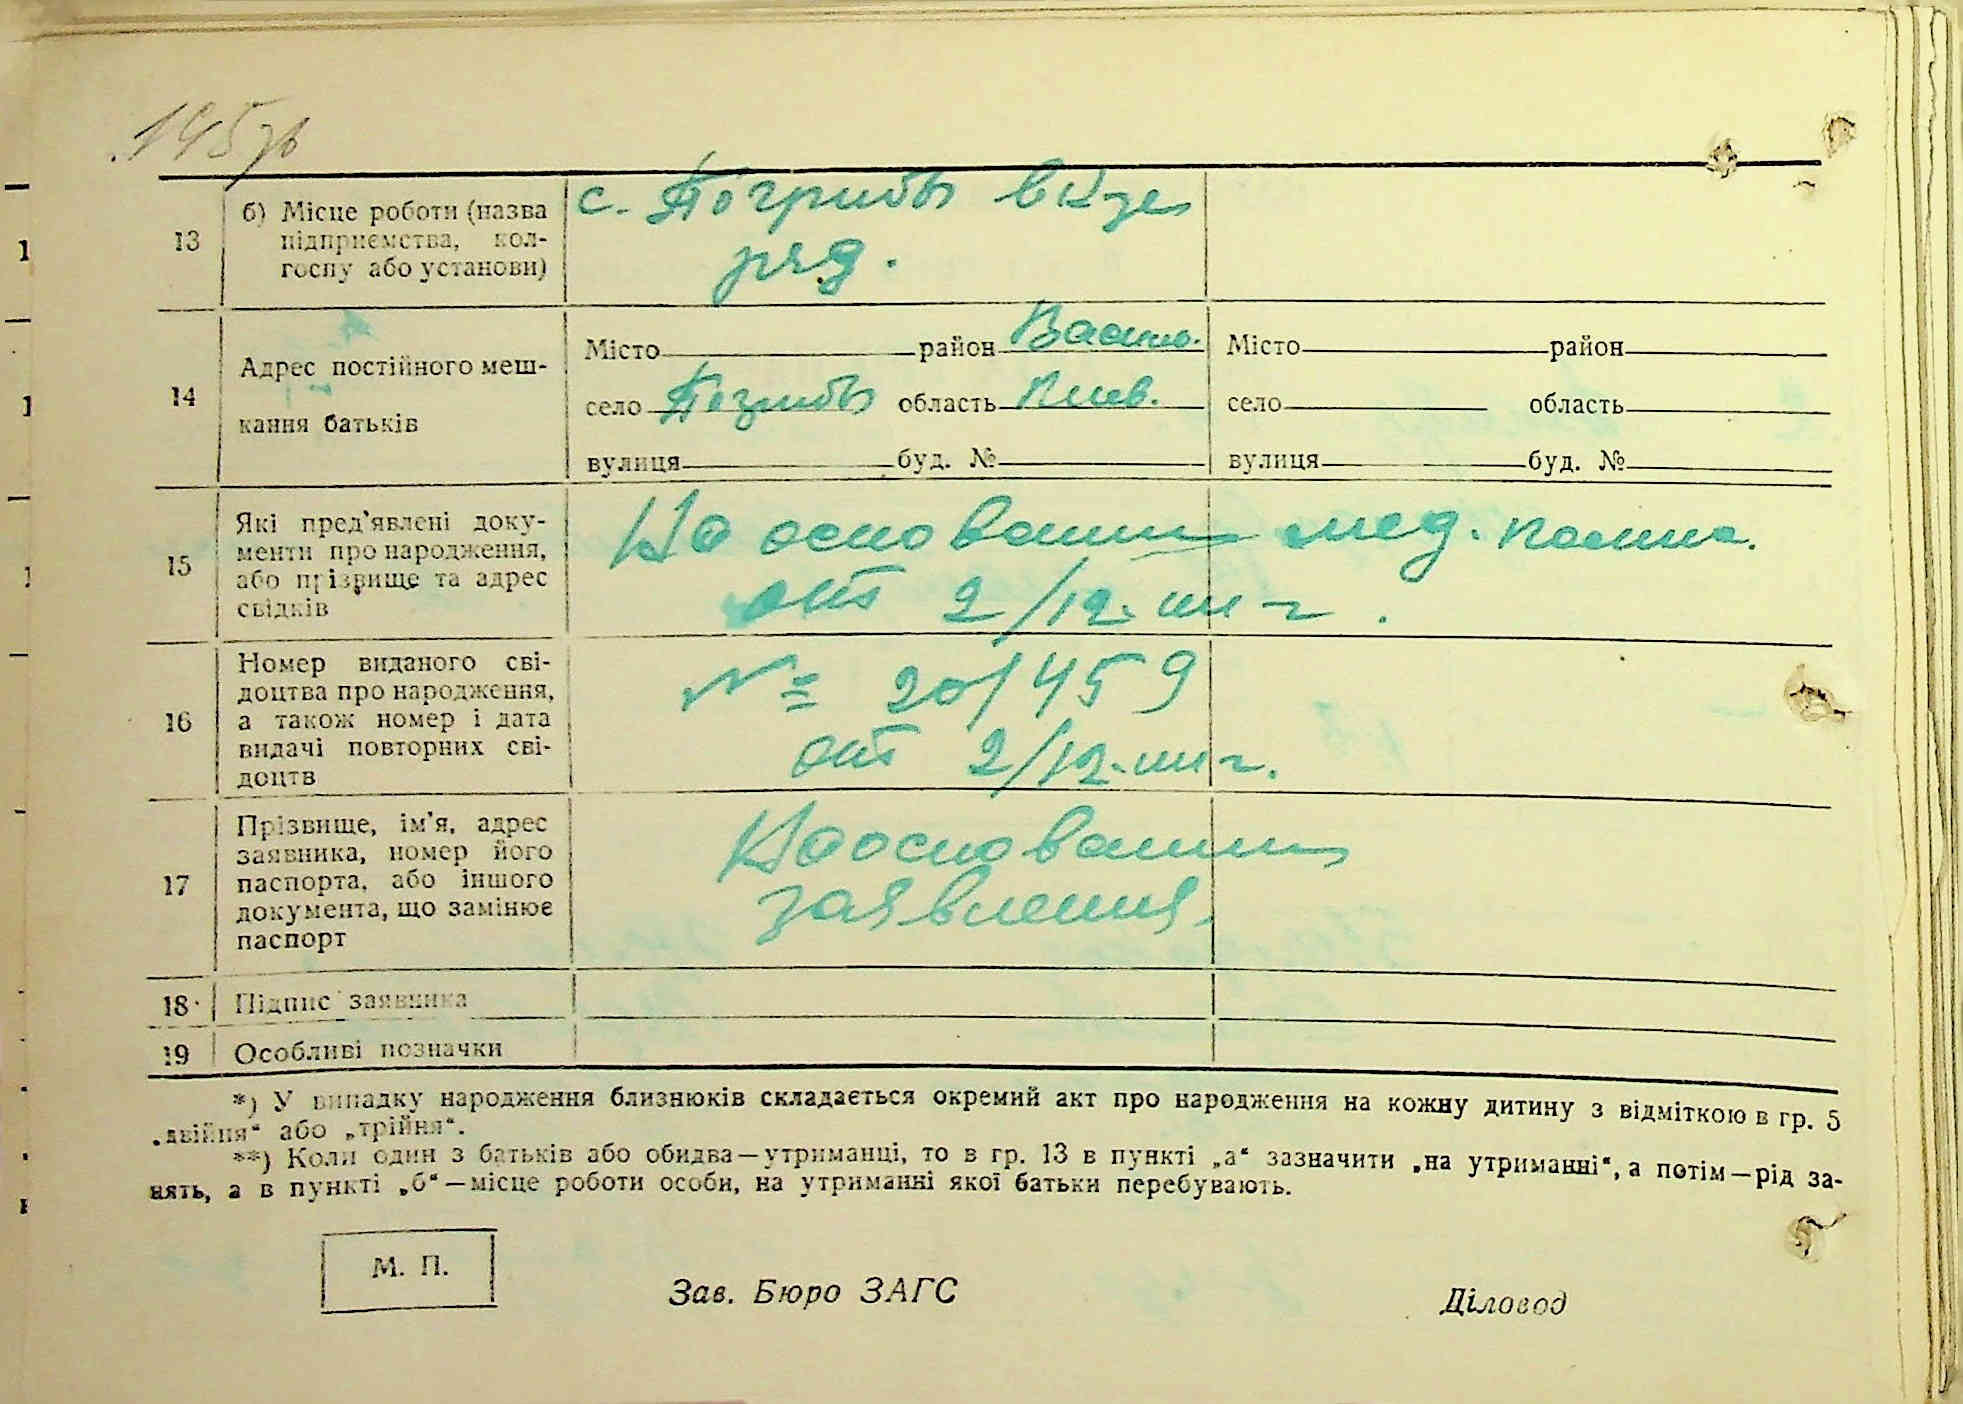 145 зв
13
б) Місце роботи (назва
підприємства, кол-
госпу або установи)
с. Погрибы
ряд.
14
Адрес постійного меш-
кання батьків
Місто район
село Погрибы область Киев.
вулиця буд. №
Місто район
село область
вулиця буд. №
15
Які пред'явлені доку-
менти про народження,
або прізвище та адрес
свідків
На основании мед.
от 2/12
16
Номер виданого сві-
доцтва про народження,
а також номер і дата
видачі повторних сві-
доцтв
№ 20/459
от 2/12
17
Прізвище, ім'я, адрес
заявника, номер його
паспорта, або іншого
документа, що замінює
паспорт
На основании
заявления.
18 Підпис заявника
19 Особливі позначки
*) У випадку народження близнюків складається окремий акт про народження на кожну дитину з відміткою в гр. 5
„двійня“ або „трійня“.
**) Коли один з батьків або обидва—утриманці, то в гр. 13 в пункті „а“ зазначити „на утриманні“, а потім—рід за-
нять, а в пункті „б“—місце роботи особи, на утриманні якої батьки перебувають.
М. П.
Зав. Бюро ЗАГС
Діловод